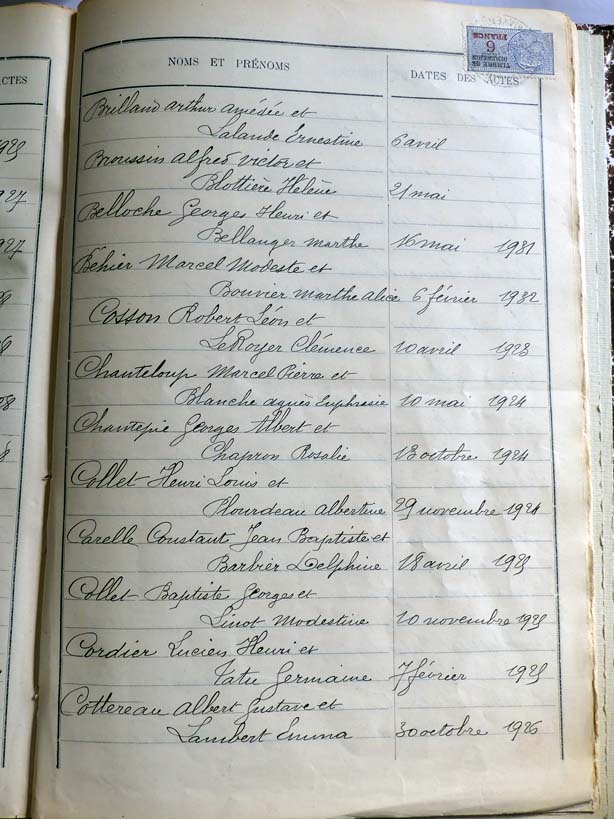 ACTES
NOMS ET PRÉNOMS
DATES DES ACTES
TIMBRE DE
DIMENSION
6
FRANCS
Brilland Arthur Amédée et
Lalande Ernestine 6 avril
Broussin Alfred Victor et
Blottière Hélène 21 mai
Belloche Georges Henri et
Bellanger Marthe 16 mai 1931
Béhier Marcel Modeste et
Bouvier Marthe Alice 6 février 1932
Cosson Robert Léon et
LeRoyer Clémence 10 avril 1923
Chanteloup Marcel Pierre et
Blanche Agnès Euphrasie 10 mai 1924
Chantepie Georges Albert et
Chapron Rosalie 18 octobre 1924
Collet Henri Louis et
Plourdeau Albertine 29 novembre 1924
Carelle Constant Jean Baptiste et
Barbier Delphine 18 avril 1925
Collet Baptiste Georges et
Linot Modestine 10 novembre 1925
Cordier Lucien Henri et
Tatu Germaine 7 février 1925
Cottereau Albert Gustave et
Lambert Emma 30 octobre 1926